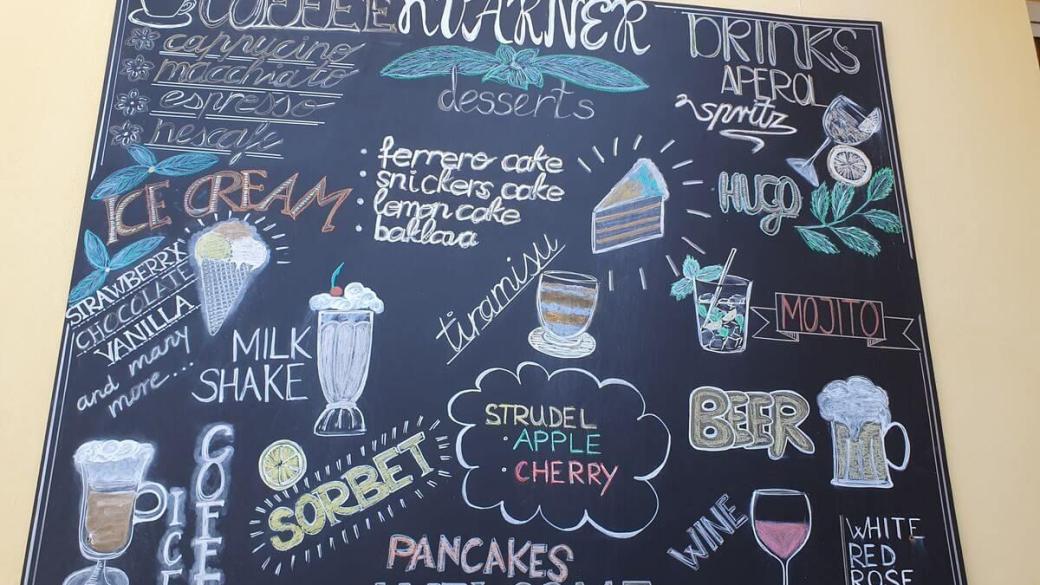 COFFEE
cappucino
macchiato
espresso
nescafe
KVARNER
desserts
• ferrero cake
• snickers cake
• lemon cake
• baklava
DRINKS
APEROL
spritz
HUGO
MOJITO
BEER
WINE
WHITE
RED
ROSE
ICE CREAM
STRAWBERRY
CHOCOLATE
VANILLA
and many
more....
MILK
SHAKE
tiramisu
STRUDEL
• APPLE
• CHERRY
SORBET
ICE
COFFE
PANCAKES